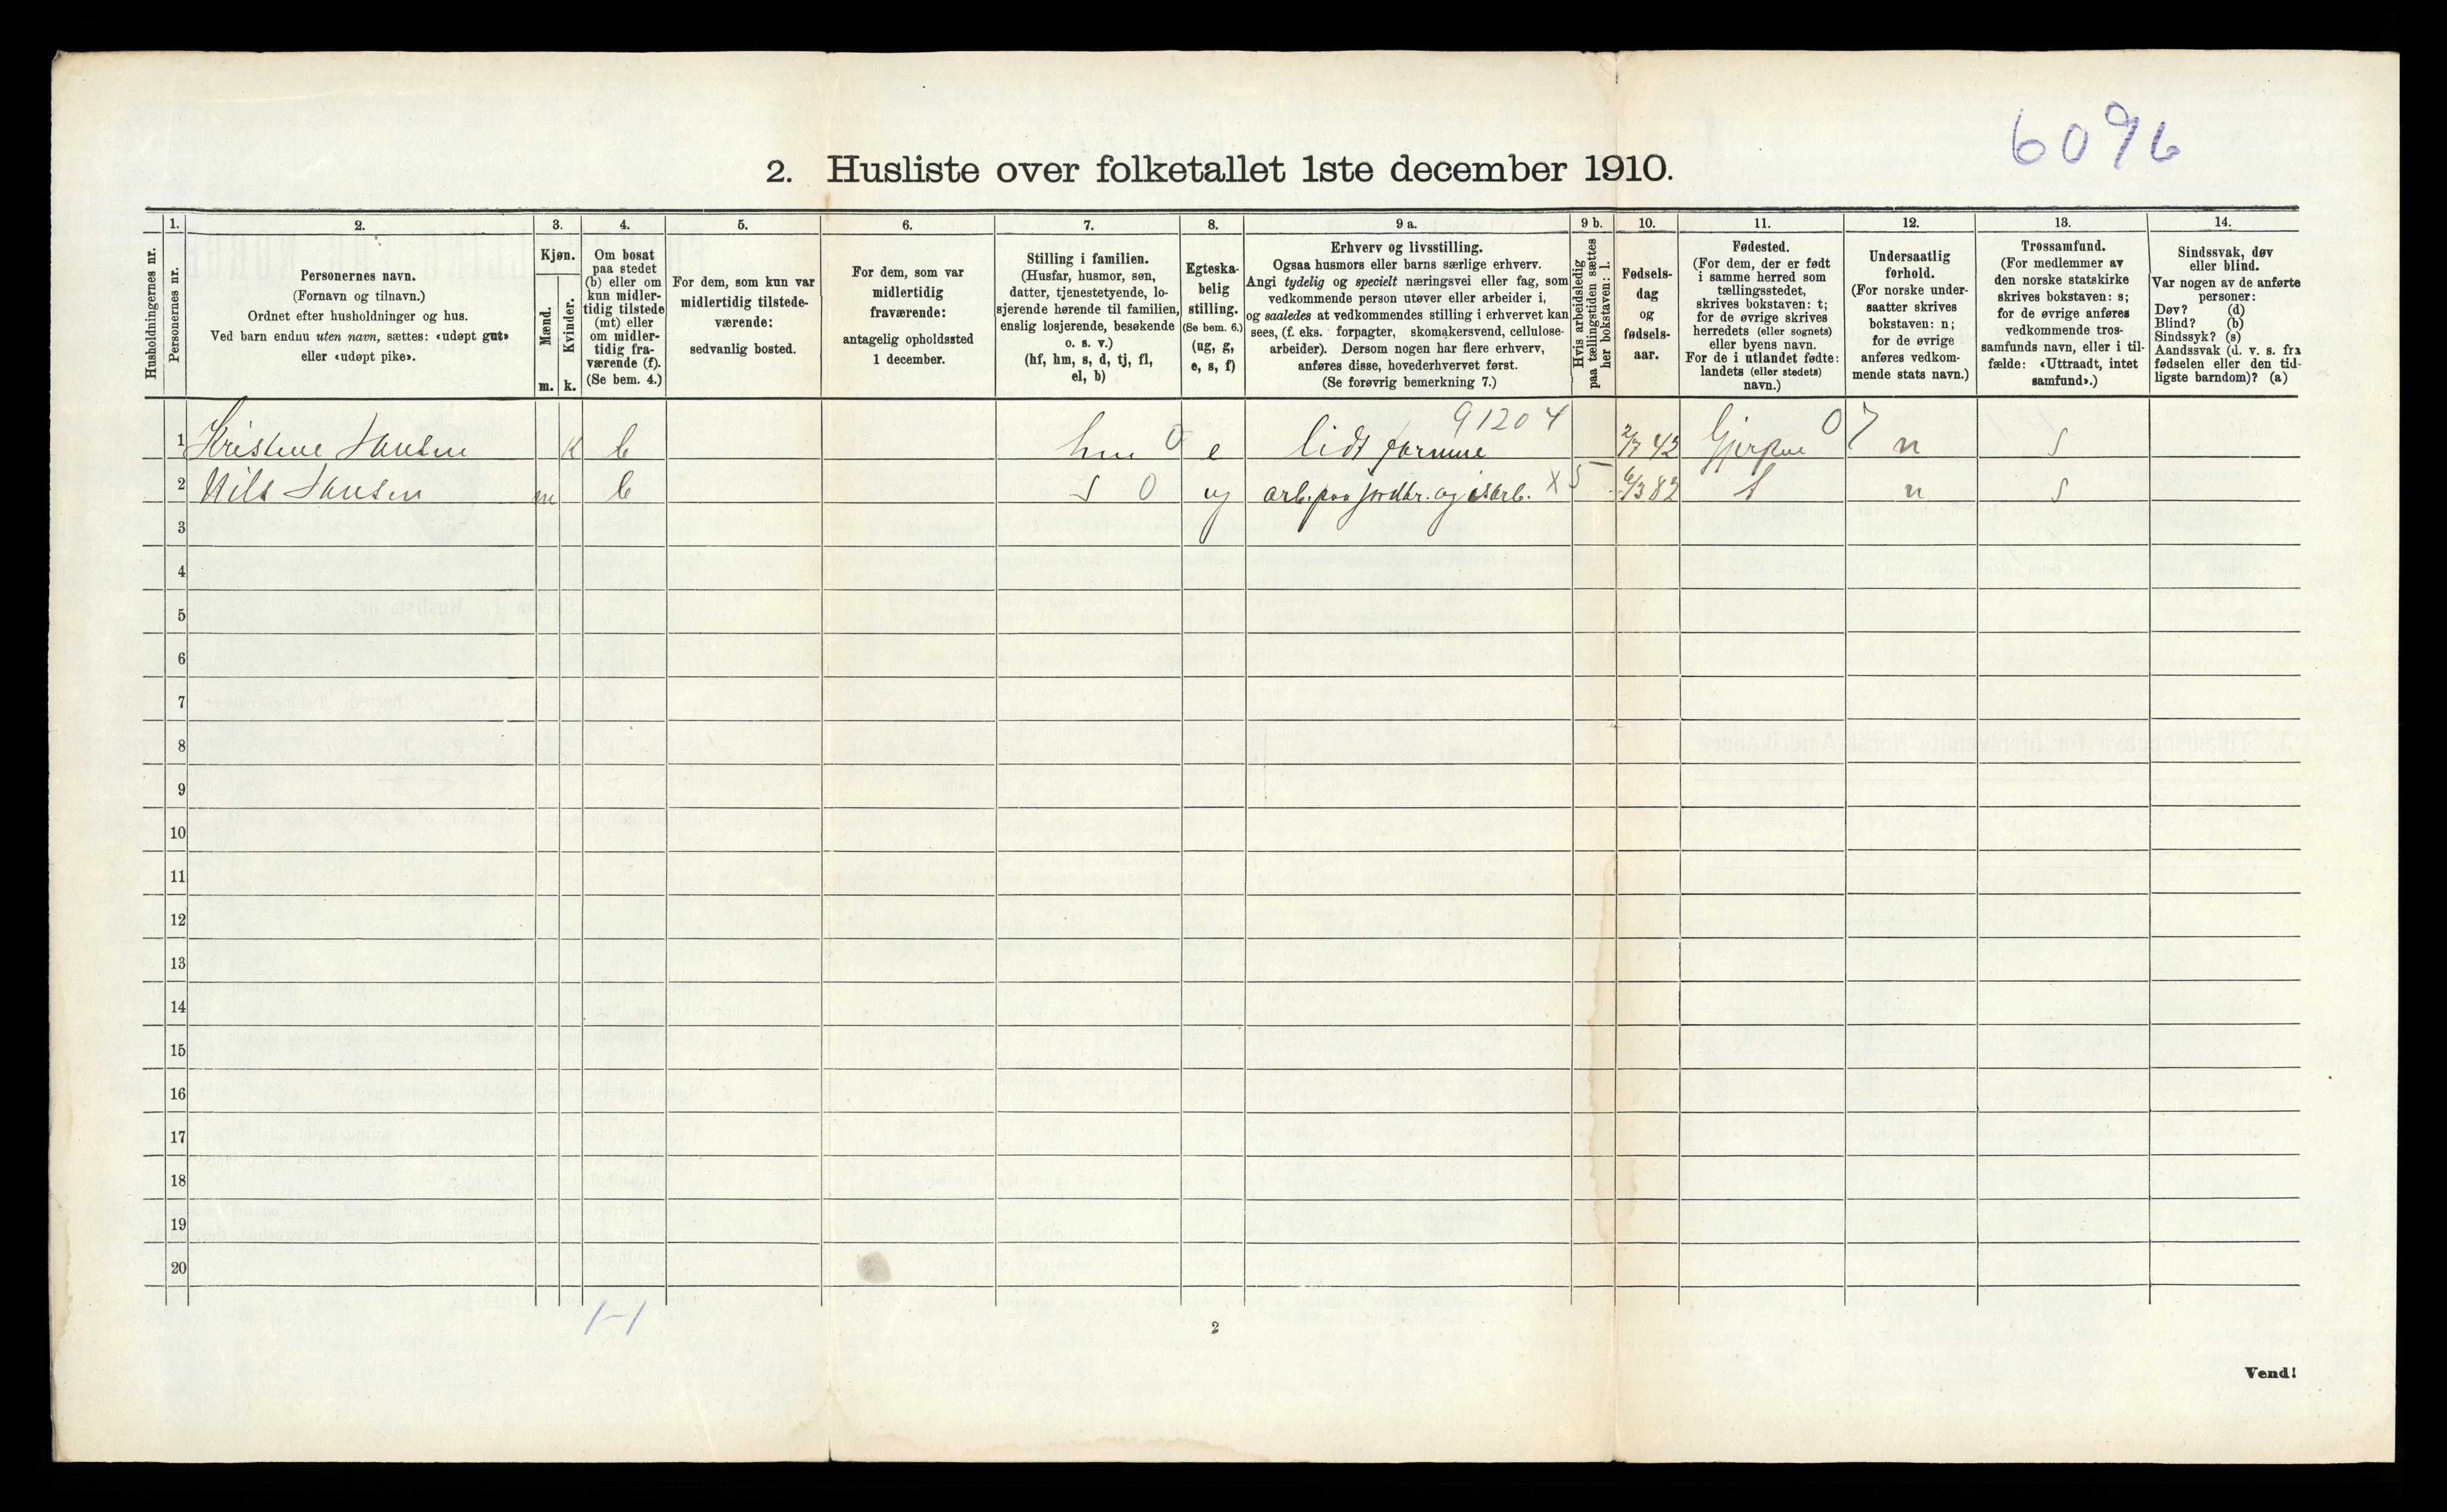 6096
2. Husliste over folketallet 1ste december 1910.
Husholdningernes nr.
1.
Personernes nr.
2.
Personernes navn.
(Fornavn og tilnavn.)
Ordnet efter husholdninger og hus.
Ved barn endnu uten navn, sættes: «udøpt gut»
eller «udøpt pike».
3.
Kjøn.
Mænd.
m.
Kvinder.
k.
4.
Om bosat
paa stedet
(b) eller om
kun midler-
tidig tilstede
(mt) eller
om midler-
tidig fra-
værende (f).
(Se bem. 4.)
5.
For dem, som kun var
midlertidig tilstede-
værende:
sedvanlig bosted.
6.
For dem, som var
midlertidig
fraværende:
antagelig opholdssted
1 december.
7.
Stilling i familien.
(Husfar, husmor, søn,
datter, tjenestetyende, lo-
sjerende hørende til familien,
enslig losjerende, besøkende
o. s. v.)
(hf, hm, s, d, tj, fl,
el, b)
8.
Egteska-
belig
stilling.
(Se bem. 6.)
(ug, g,
e, s, f)
9 a.
Erhverv og livsstilling.
Ogsaa husmors eller barns særlige erhverv.
Angi tydelig og specielt næringsvei eller fag, som
vedkommende person utøver eller arbeider i,
og saaledes at vedkommendes stilling i erhvervet kan
sees, (f. eks. forpagter, skomakersvend, cellulose-
arbeider). Dersom nogen har flere erhverv,
anføres disse, hovederhvervet først.
(Se forøvrig bemerkning 7.)
9 b.
Hvis arbeidsledig
paa tællingstiden sættes
her bokstaven: l.
10.
Fødsels-
dag
og
fødsels-
aar.
11.
Fødested.
(For dem, der er født
i samme herred som
tællingsstedet,
skrives bokstaven: t;
for de øvrige skrives
herredets (eller sognets)
eller byens navn.
For de i utlandet fødte:
landets (eller stedets)
navn.)
12.
Undersaatlig
forhold.
(For norske under-
saatter skrives
bokstaven: n;
for de øvrige
anføres vedkom-
mende stats navn.)
13.
Trossamfund.
(For medlemmer av
den norske statskirke
skrives bokstaven: s;
for de øvrige anføres
vedkommende tros-
samfunds navn, eller i til-
fælde: «Uttraadt, intet
samfund».)
14.
Sindssvak, døv
eller blind.
Var nogen av de anførte
personer:
Døv? (d)
Blind? (b)
Sindssyk? (s)
Aandssvak (d. v. s. fra
fødselen eller den tid-
ligste barndom)? (a)
91204
1 Kristine Hansen K b hm 0 e lidt formue 2/7 42 Gjerpen 07 n s
2 Nils Hansen m b s 0 ug arb. paa jordbr. og isarb. X 5 6/3 82 t n s
3
4
5
6
7
8
9
10
11
12
13
14
15
16
17
18
19
20
1-1
2
Vend!